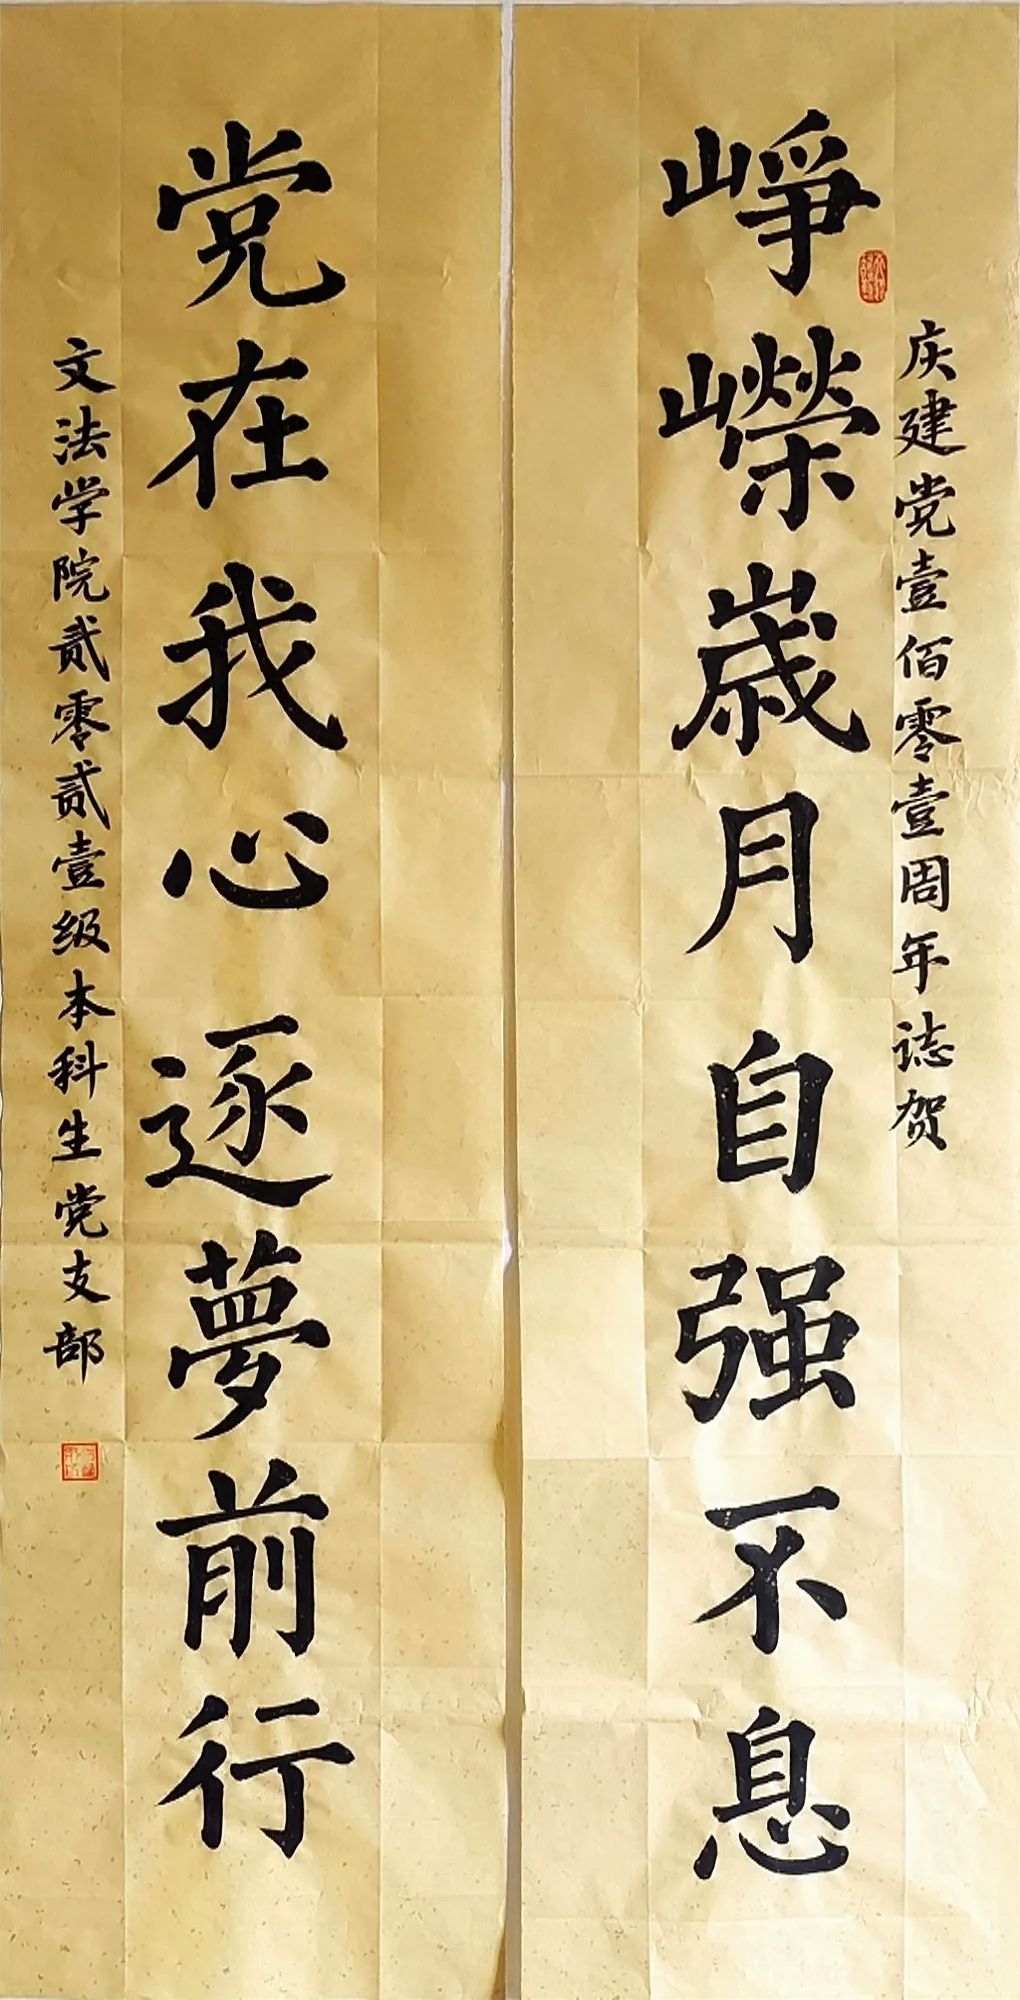 庆建党壹佰零壹周年誌贺
峥嶸歳月自强不息
党在我心逐夢前行
文法学院贰零贰壹级本科生党支部